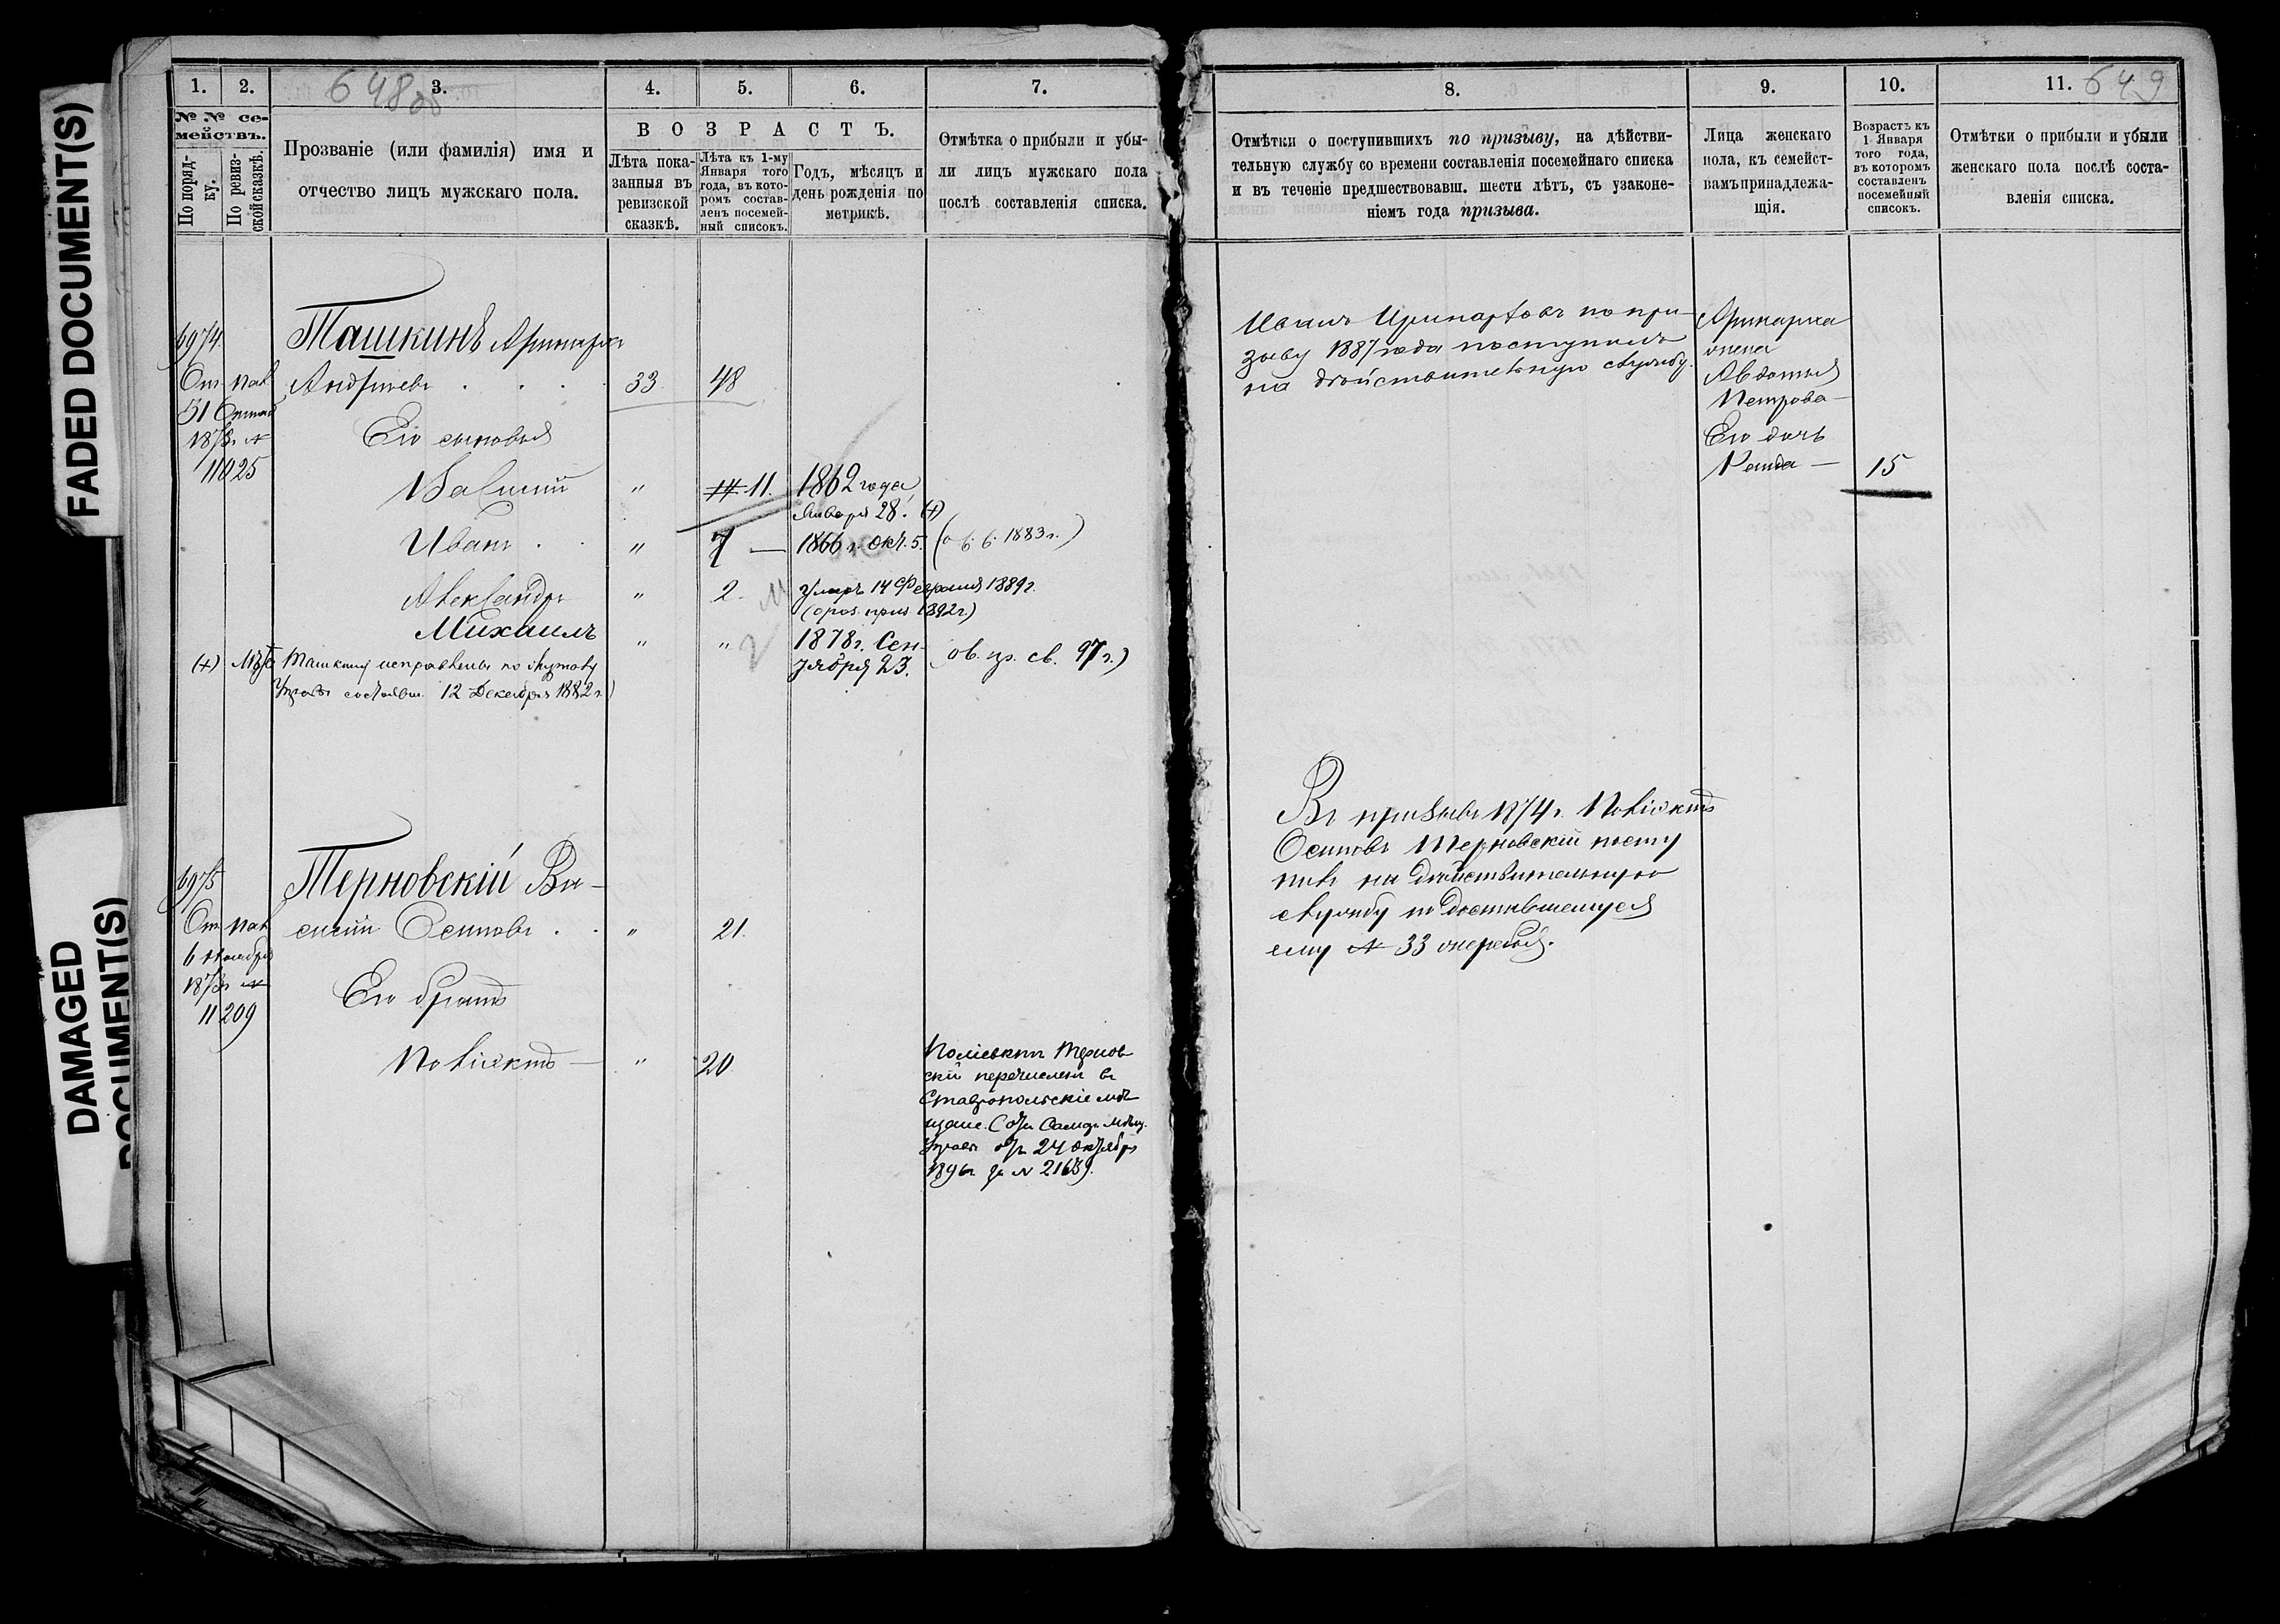 FADED DOCUMENT(S)
DAMAGED
DOCUMENT(S)
648 об
1.
2.
3.
4.
5.
6.
7.
№ № се-
мействъ.
По поряд-
ку.
По ревиз-
ской сказкѣ.
Прозваніе (или фамилія) имя и
отчество лицъ мужскаго пола.
ВОЗРАСТЪ.
Лѣта пока-
занныя въ
ревизской
сказкѣ.
Лѣта къ 1-му
Января того
года, въ кото-
ромъ состав-
ленъ посемей-
ный списокъ.
Годъ, мѣсяцъ и
день рожденія по
метрикѣ.
Отмѣтка о прибыли и убы-
ли лицъ мужскаго пола
послѣ составленія списка.
6974
Ташкинъ
Андреевъ . . . 33 48
1873г №
11025
Его сыновья
Василій " 11. 1862 года
Января 28. (+)
Иванъ . . " 7 — 1866 г. Окт. 5. 1883 г.)
Александръ " 2. Умеръ 14 Февраля 1889 г.
1892 г.)
Михаилъ " " 1878 г. Сен-
тября 23. св. 97 г.)
(+) Лѣта Ташкину исправлены по
12 Декабря 1882 г.)
6975
Терновскій Ва-
силій Осиповъ . . " 21.
6 Ноября
1873г №
11209
Его братъ
Поліектъ — " 20
Поліектъ Тернов-
скій перечисленъ въ
Ставропольскіе мѣ-
щане. Самар. Мѣщ.
Управ. отъ 24 Октября
1896г за № 21639.
649
8.
9.
10.
11.
Отмѣтки о поступившихъ по призыву, на дѣйстви-
тельную службу со времени составленія посемейнаго списка
и въ теченіе предшествовавш. шести лѣтъ, съ узаконе-
ніемъ года призыва.
Лица женскаго
пола, къ семейст-
вамъ принадлежа-
щія.
Возрастъ къ
1 Января
того года,
въ которомъ
составленъ
посемейный
списокъ.
Отмѣтки о прибыли и убыли
женскаго пола послѣ соста-
вленія списка.
Иванъ по при-
зыву 1887 года поступилъ
на дѣйствительную службу.
жена
Авдотья
Петрова —
Его дочь
— 15
Въ призывъ 1874 г. Поліектъ
Осиповъ Терновскій посту
пилъ на дѣйствительную
службу по доставшемуся
ему № 33 жеребью.